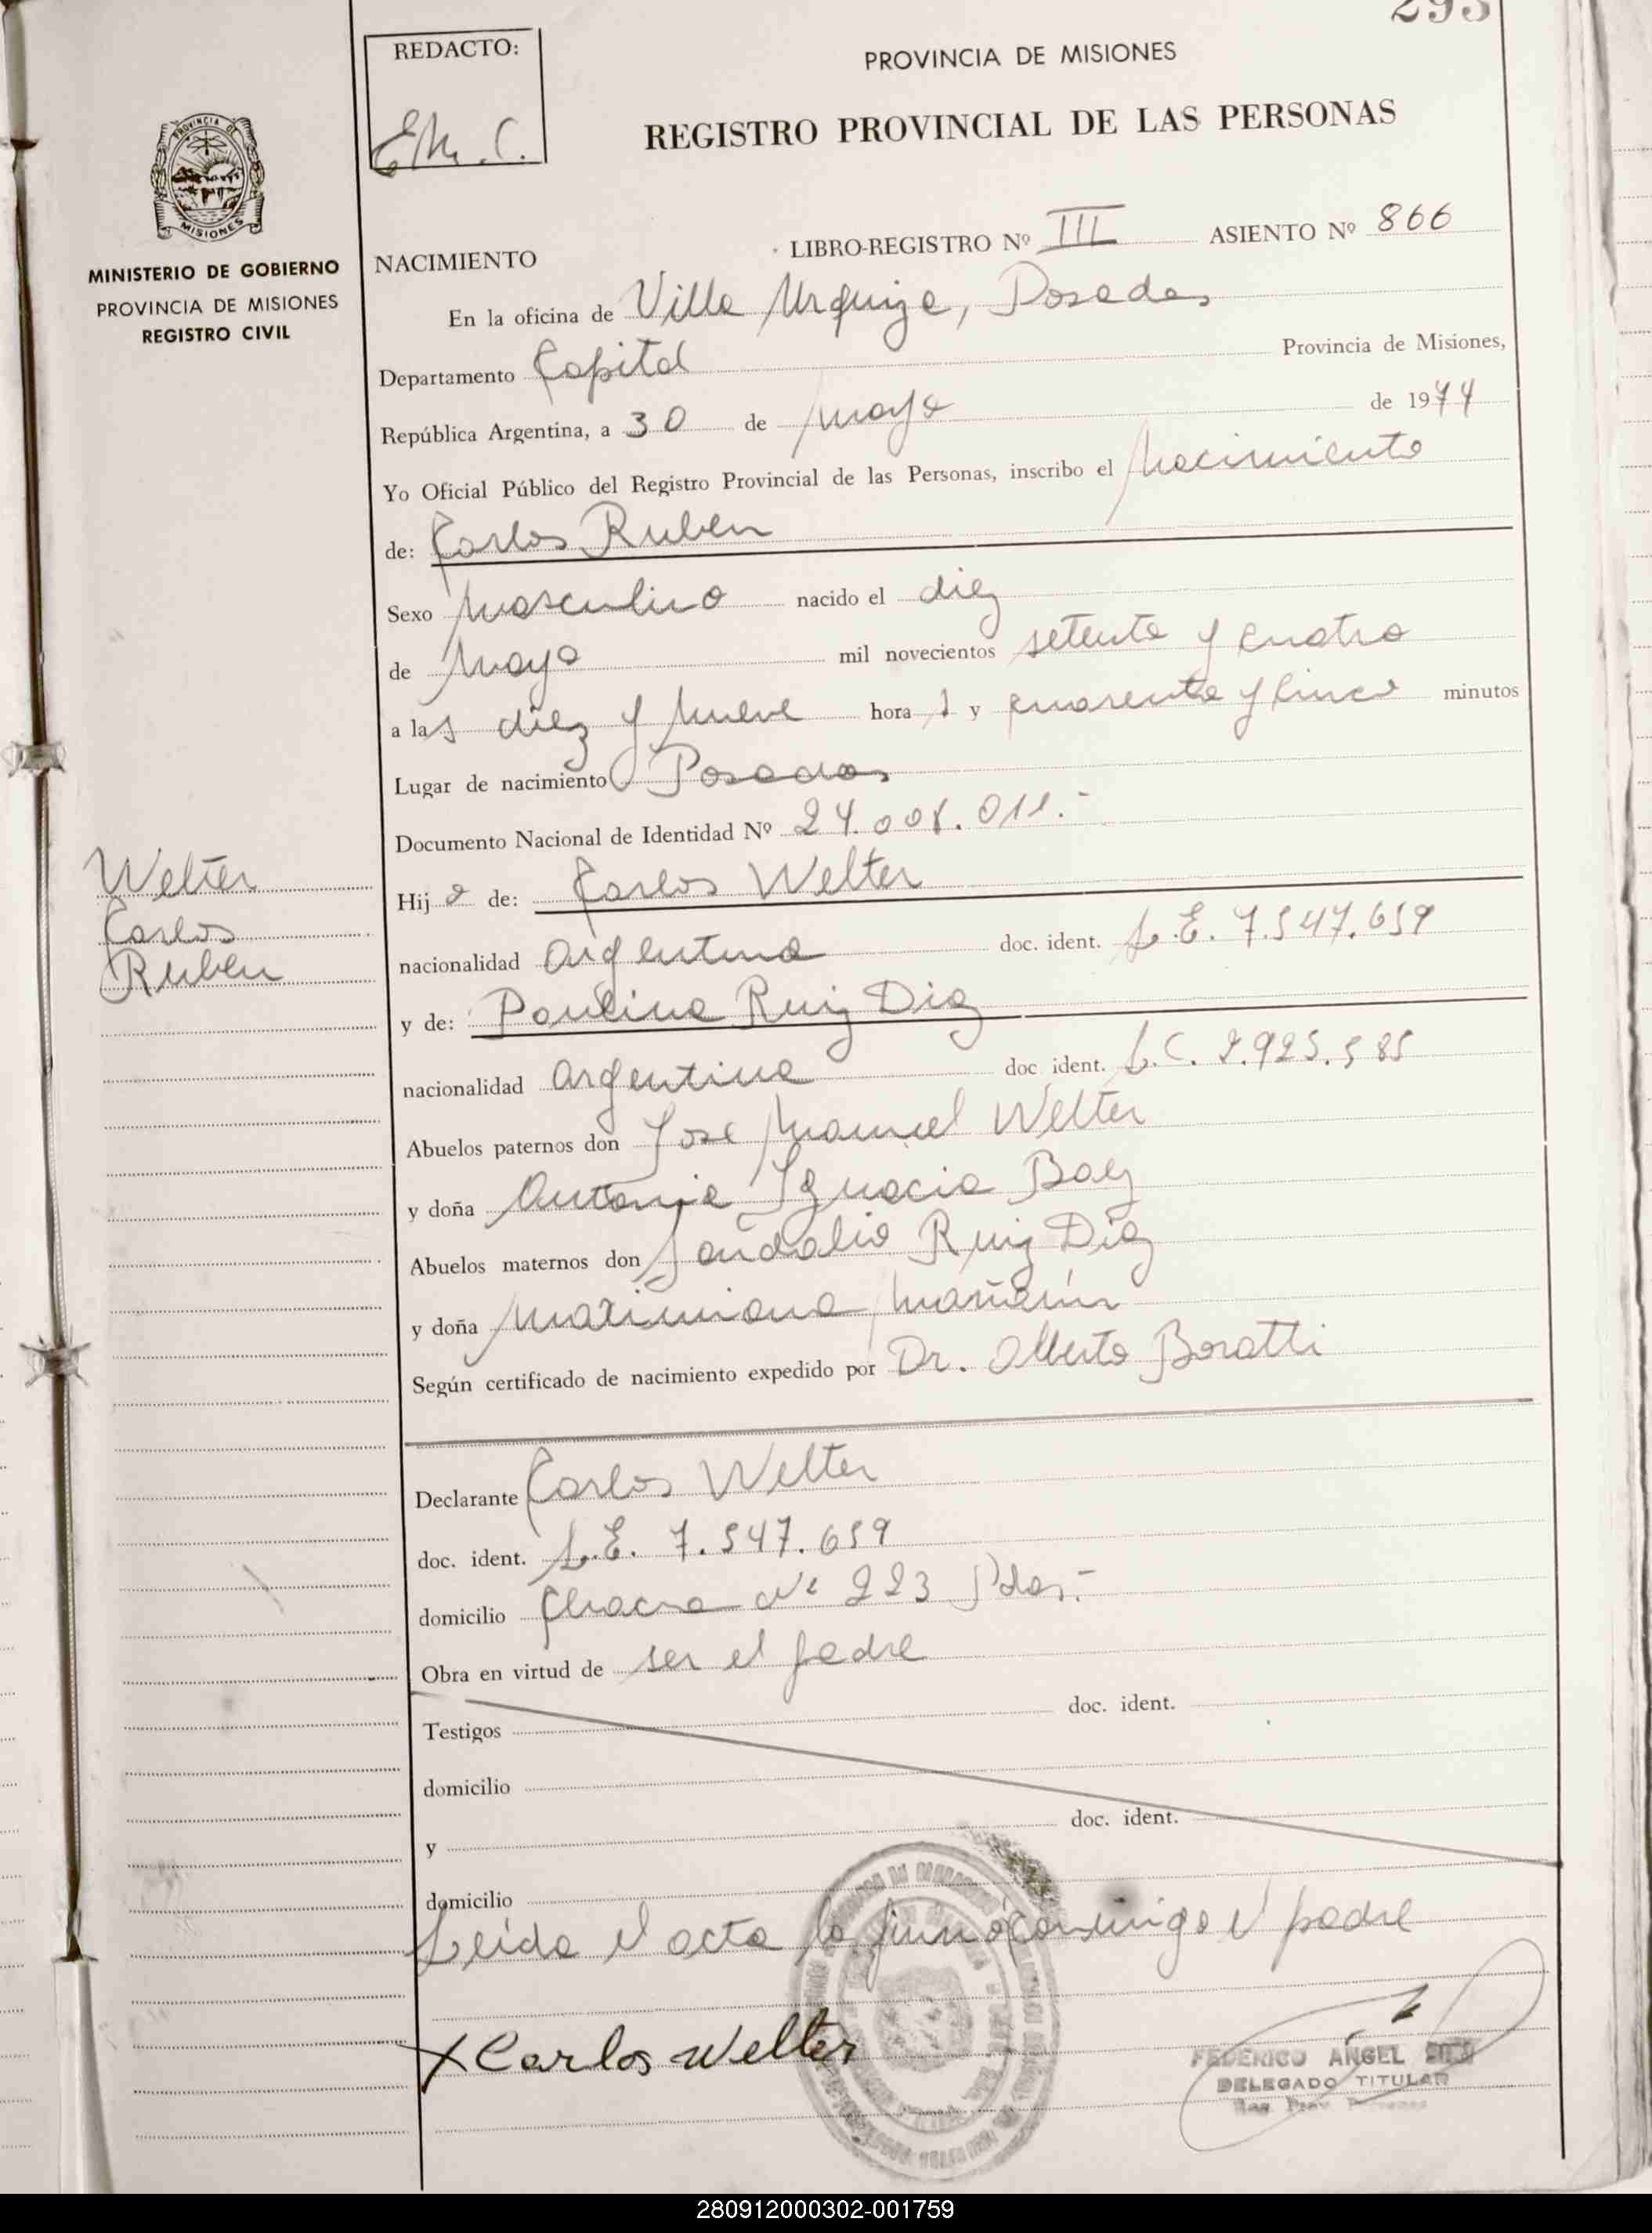 293
REDACTO:
E.M.C.
PROVINCIA DE MISIONES
REGISTRO PROVINCIAL DE LAS PERSONAS
PROVINCIA DE
MISIONES
MINISTERIO DE GOBIERNO
PROVINCIA DE MISIONES
REGISTRO CIVIL
NACIMIENTO LIBRO-REGISTRO Nº III ASIENTO Nº 866
En la oficina de Villa Urquiza, Posadas
Departamento Capital Provincia de Misiones,
República Argentina, a 30 de mayo de 1974
Yo Oficial Público del Registro Provincial de las Personas, inscribo el nacimiento
de: Carlos Ruben
Sexo masculino nacido el diez
de mayo mil novecientos setenta y cuatro
a las diez y nueve horas y cuarenta y cinco minutos
Lugar de nacimiento Posadas
Documento Nacional de Identidad Nº 24.008.011.-
Welter
Carlos
Ruben
Hijo de: Carlos Welter
nacionalidad argentina doc. ident. L.E. 7.547.659
y de: Paulina Ruiz Diaz
nacionalidad argentina doc ident. L.C. 2.925.585
Abuelos paternos don Jose Manuel Welter
y doña Antonia Ignacia Baez
Abuelos maternos don Sandalio Ruiz Diaz
y doña Maximiana
Según certificado de nacimiento expedido por Dr. Alberto Boratti
Declarante Carlos Welter
doc. ident. L.E. 7.547.659
domicilio Chacra Nº 223 Pdas.-
Obra en virtud de ser el padre
Testigos doc. ident.
domicilio
y doc. ident.
domicilio
Leída el acta la firmó conmigo el padre
x Carlos Welter
FEDERICO ANGEL
DELEGADO TITULAR
Reg. Prov. Personas
280912000302-001759